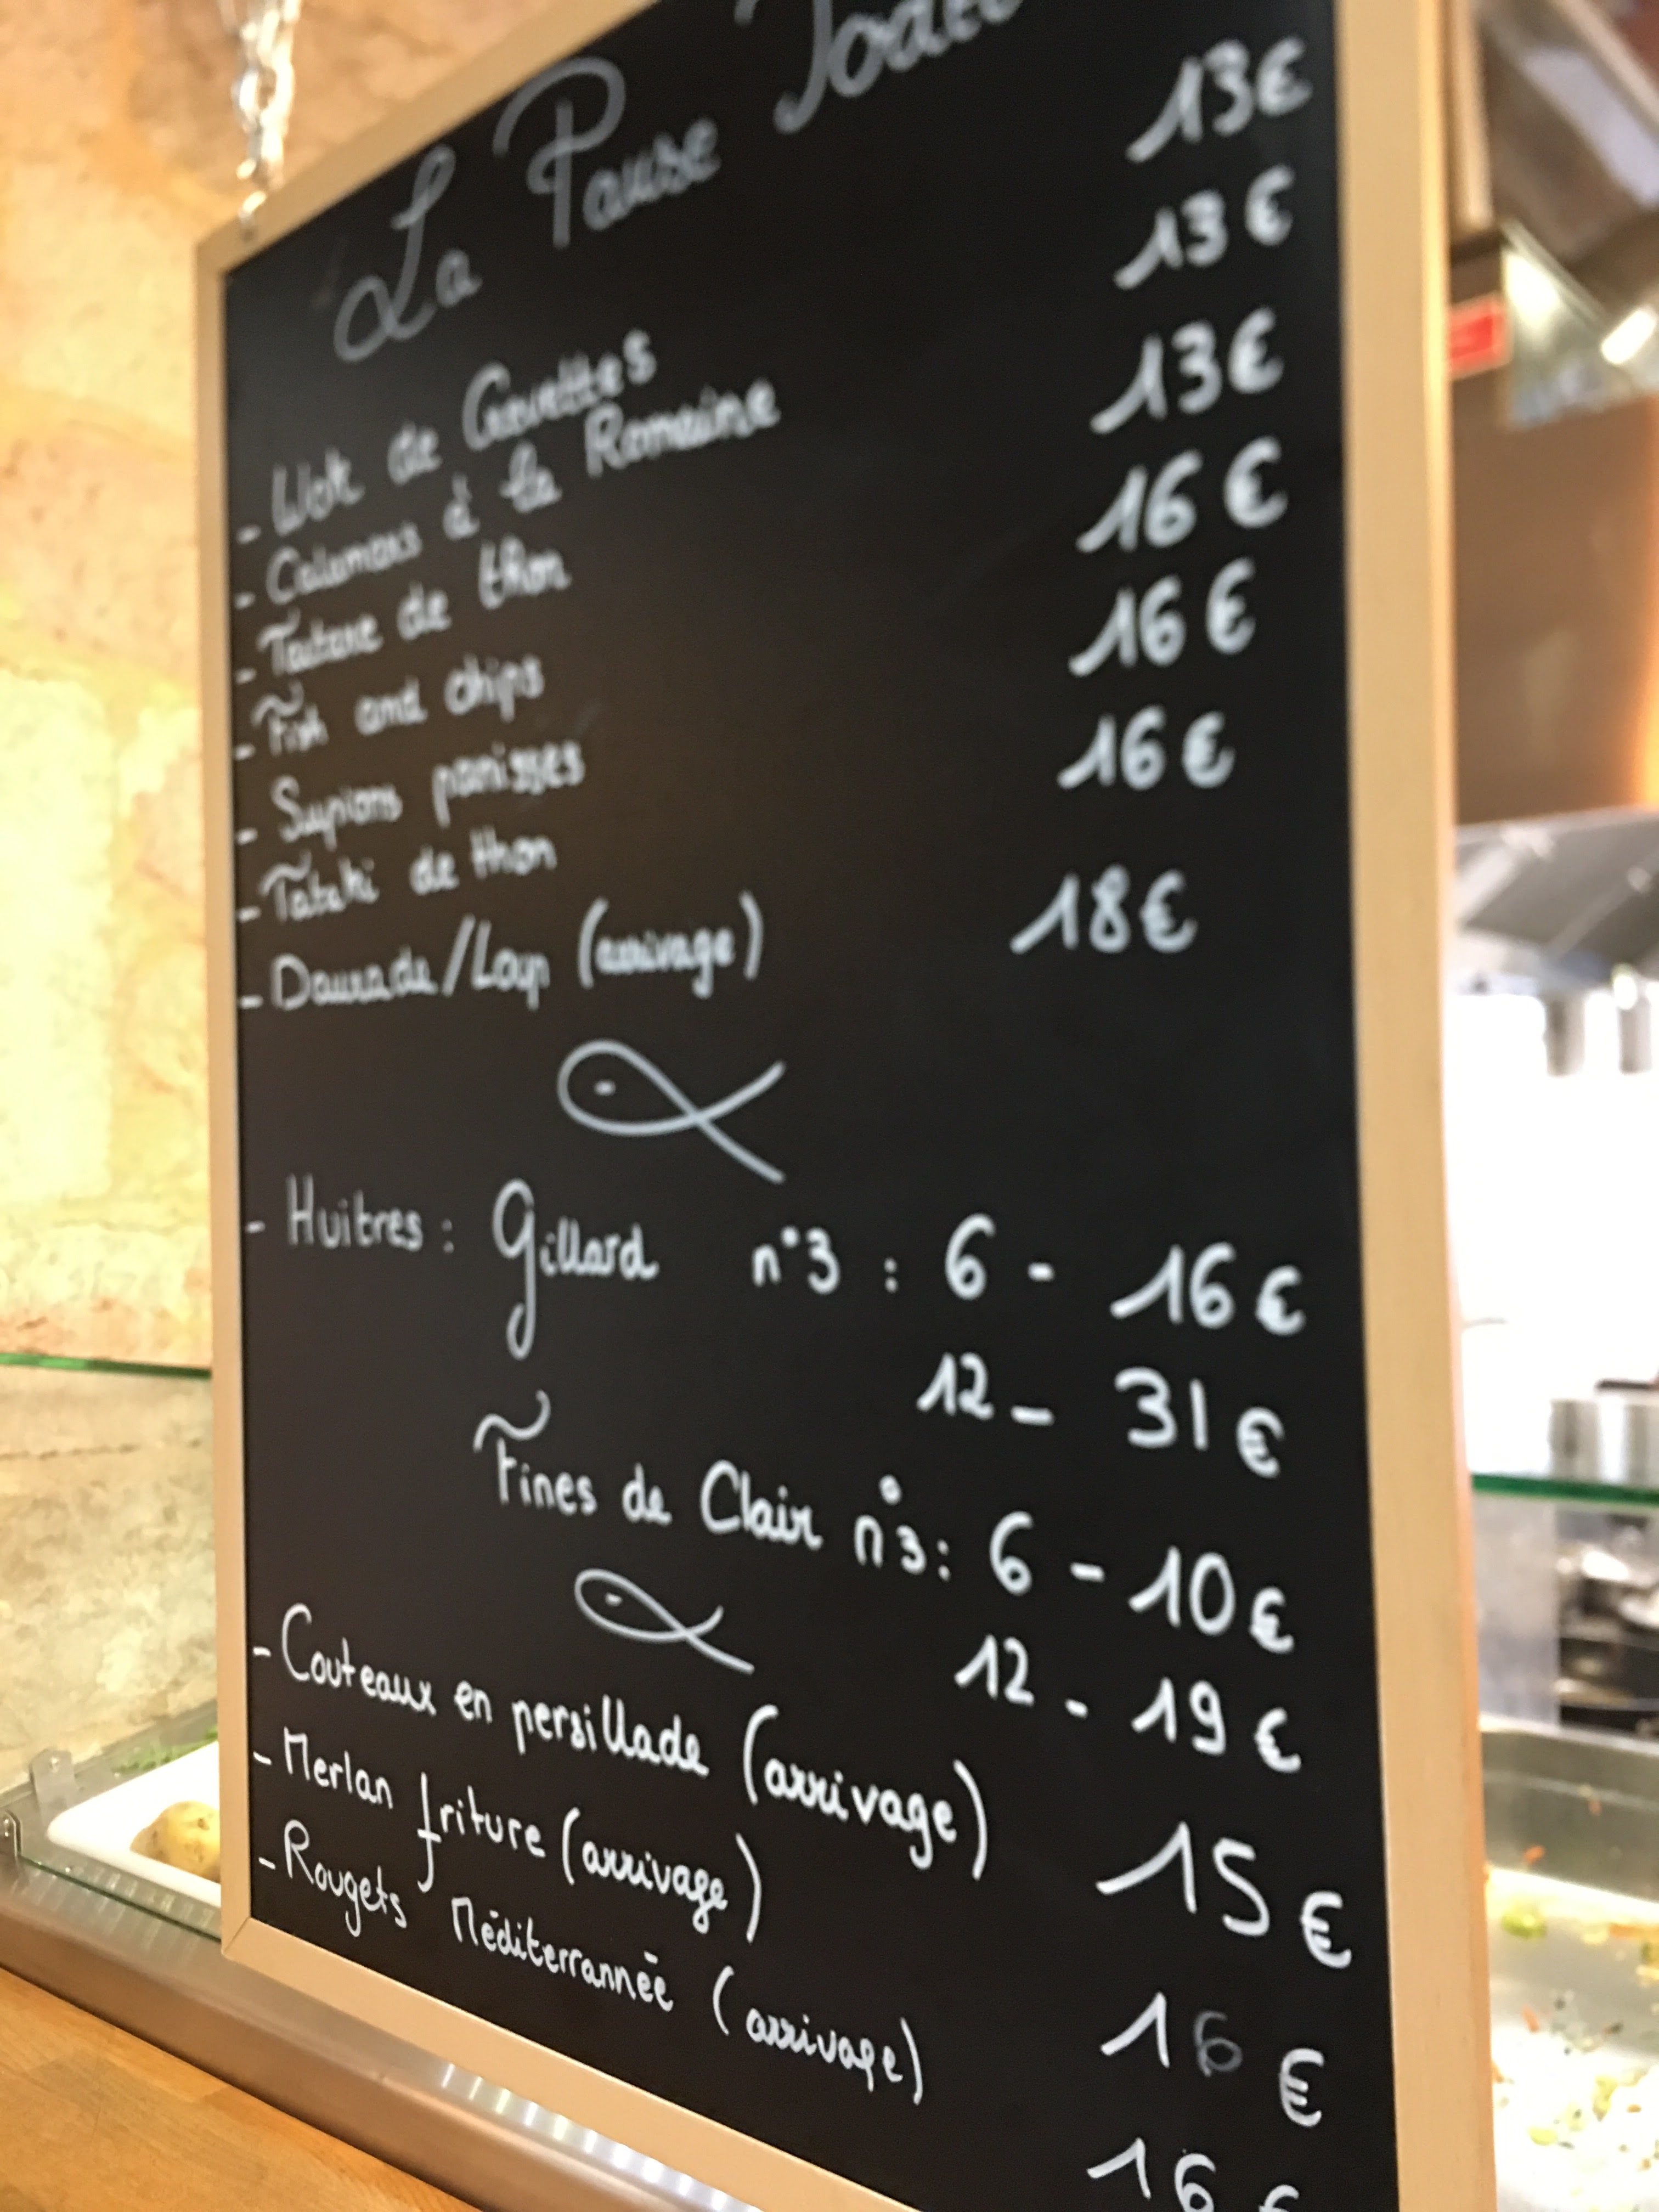 La Pause Iodée
- Wok de Crevettes 13€
- Calamars à la Romaine 13€
- Tartare de thon 13€
- Fish and chips 16€
- Supions panisses 16€
- Tataki de thon 16€
- Daurade/Loup (arrivage) 18€
- Huitres : Gillard n°3 : 6 - 16€
12 - 31€
Fines de Clair n°3 : 6 - 10€
12 - 19€
- Couteaux en persillade (arrivage) 15€
- Merlan friture (arrivage) 16€
- Rougets Méditerrannée (arrivage) 16€